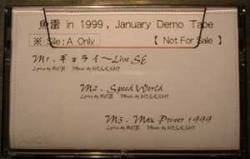 魚雷 in 1999, January Demo Tape
※ Side:A Only 【 Not For Sale 】
M1. ギョライ〜Live SE
Lyrics by Music by
M2. Speed World
Lyrics by Music by
M3. Max Power 1999
Lyrics by Music by